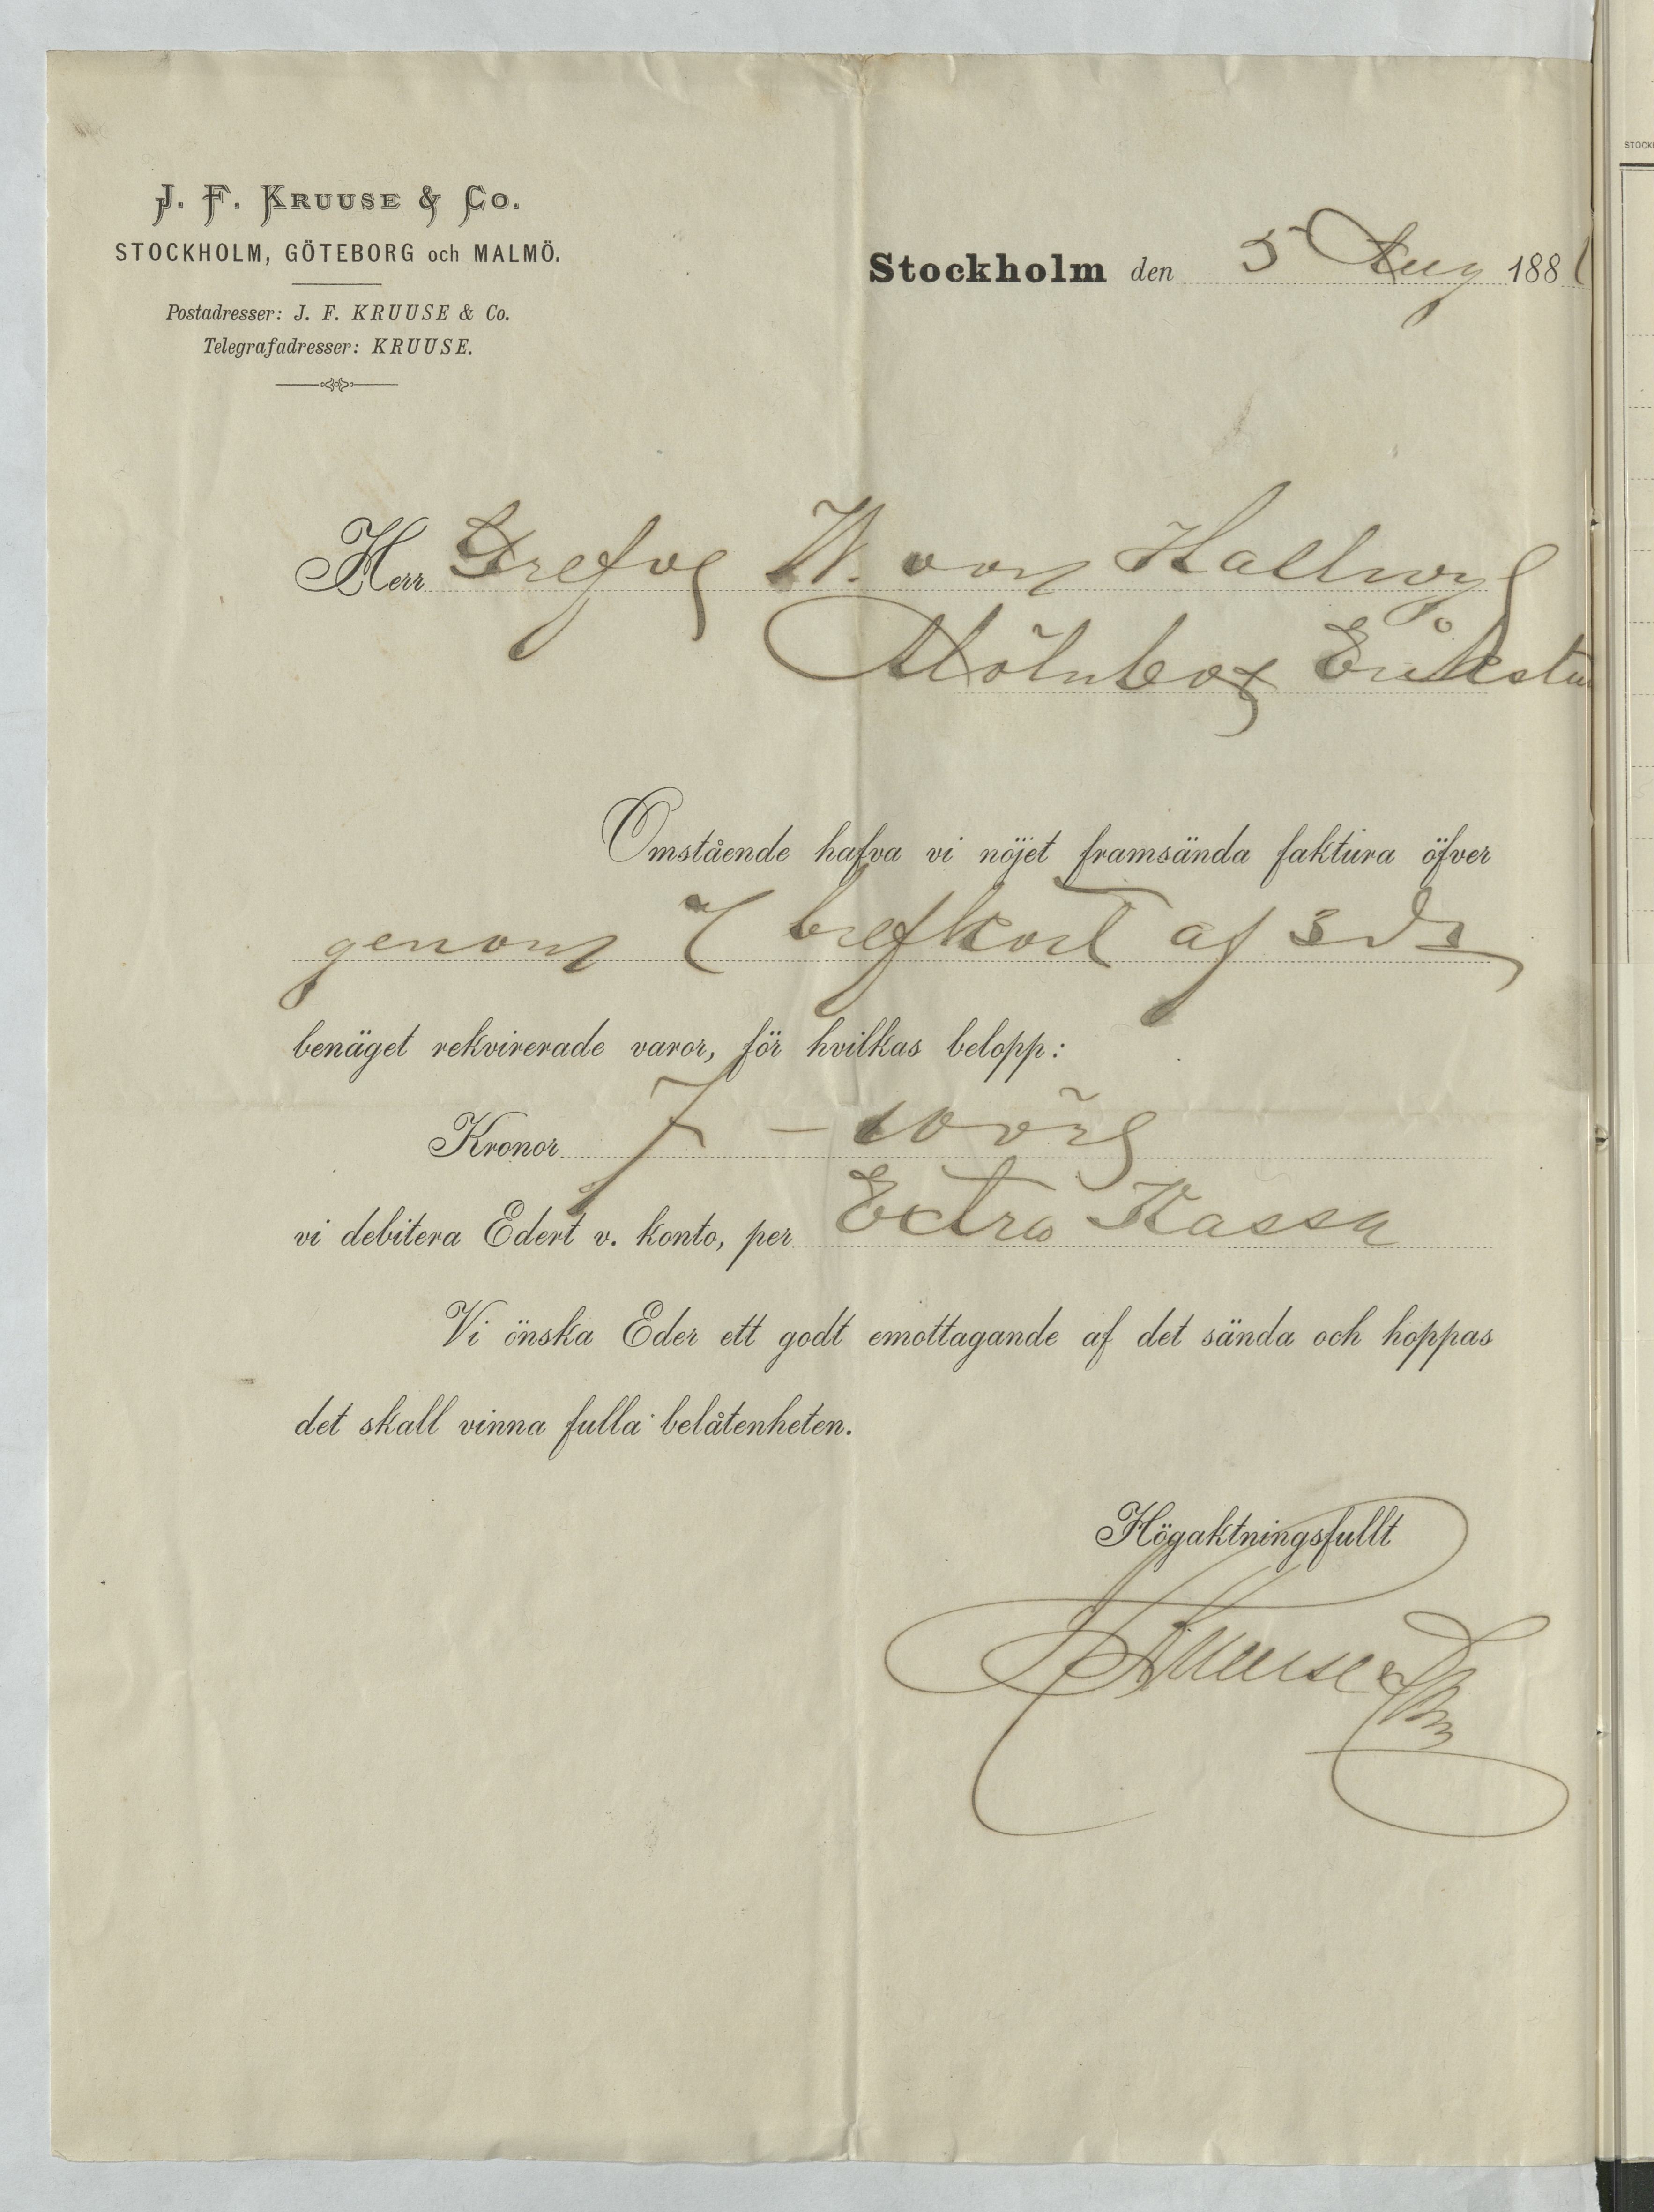 J. F. KRUUSE & Co.
STOCKHOLM, GÖTEBORG och MALMÖ.
Postadresser: J. F. KRUUSE & Co.
Telegrafadresser: KRUUSE.
Stockholm den 5 Aug 188
Herr Grefve W. von Hallwyl
Mölnbo
Omstående hafva vi nöjet framsända faktura öfver
genom brefkort af 3 ds
benäget rekvirerade varor, för hvilkas belopp:
Kronor 7 – 10 öre
vi debitera Edert v. konto, per Extra Kassa
Vi önska Eder ett godt emottagande af det sända och hoppas
det skall vinna fulla belåtenheten.
Högaktningsfullt
J F Kruuse & Co
STOCK